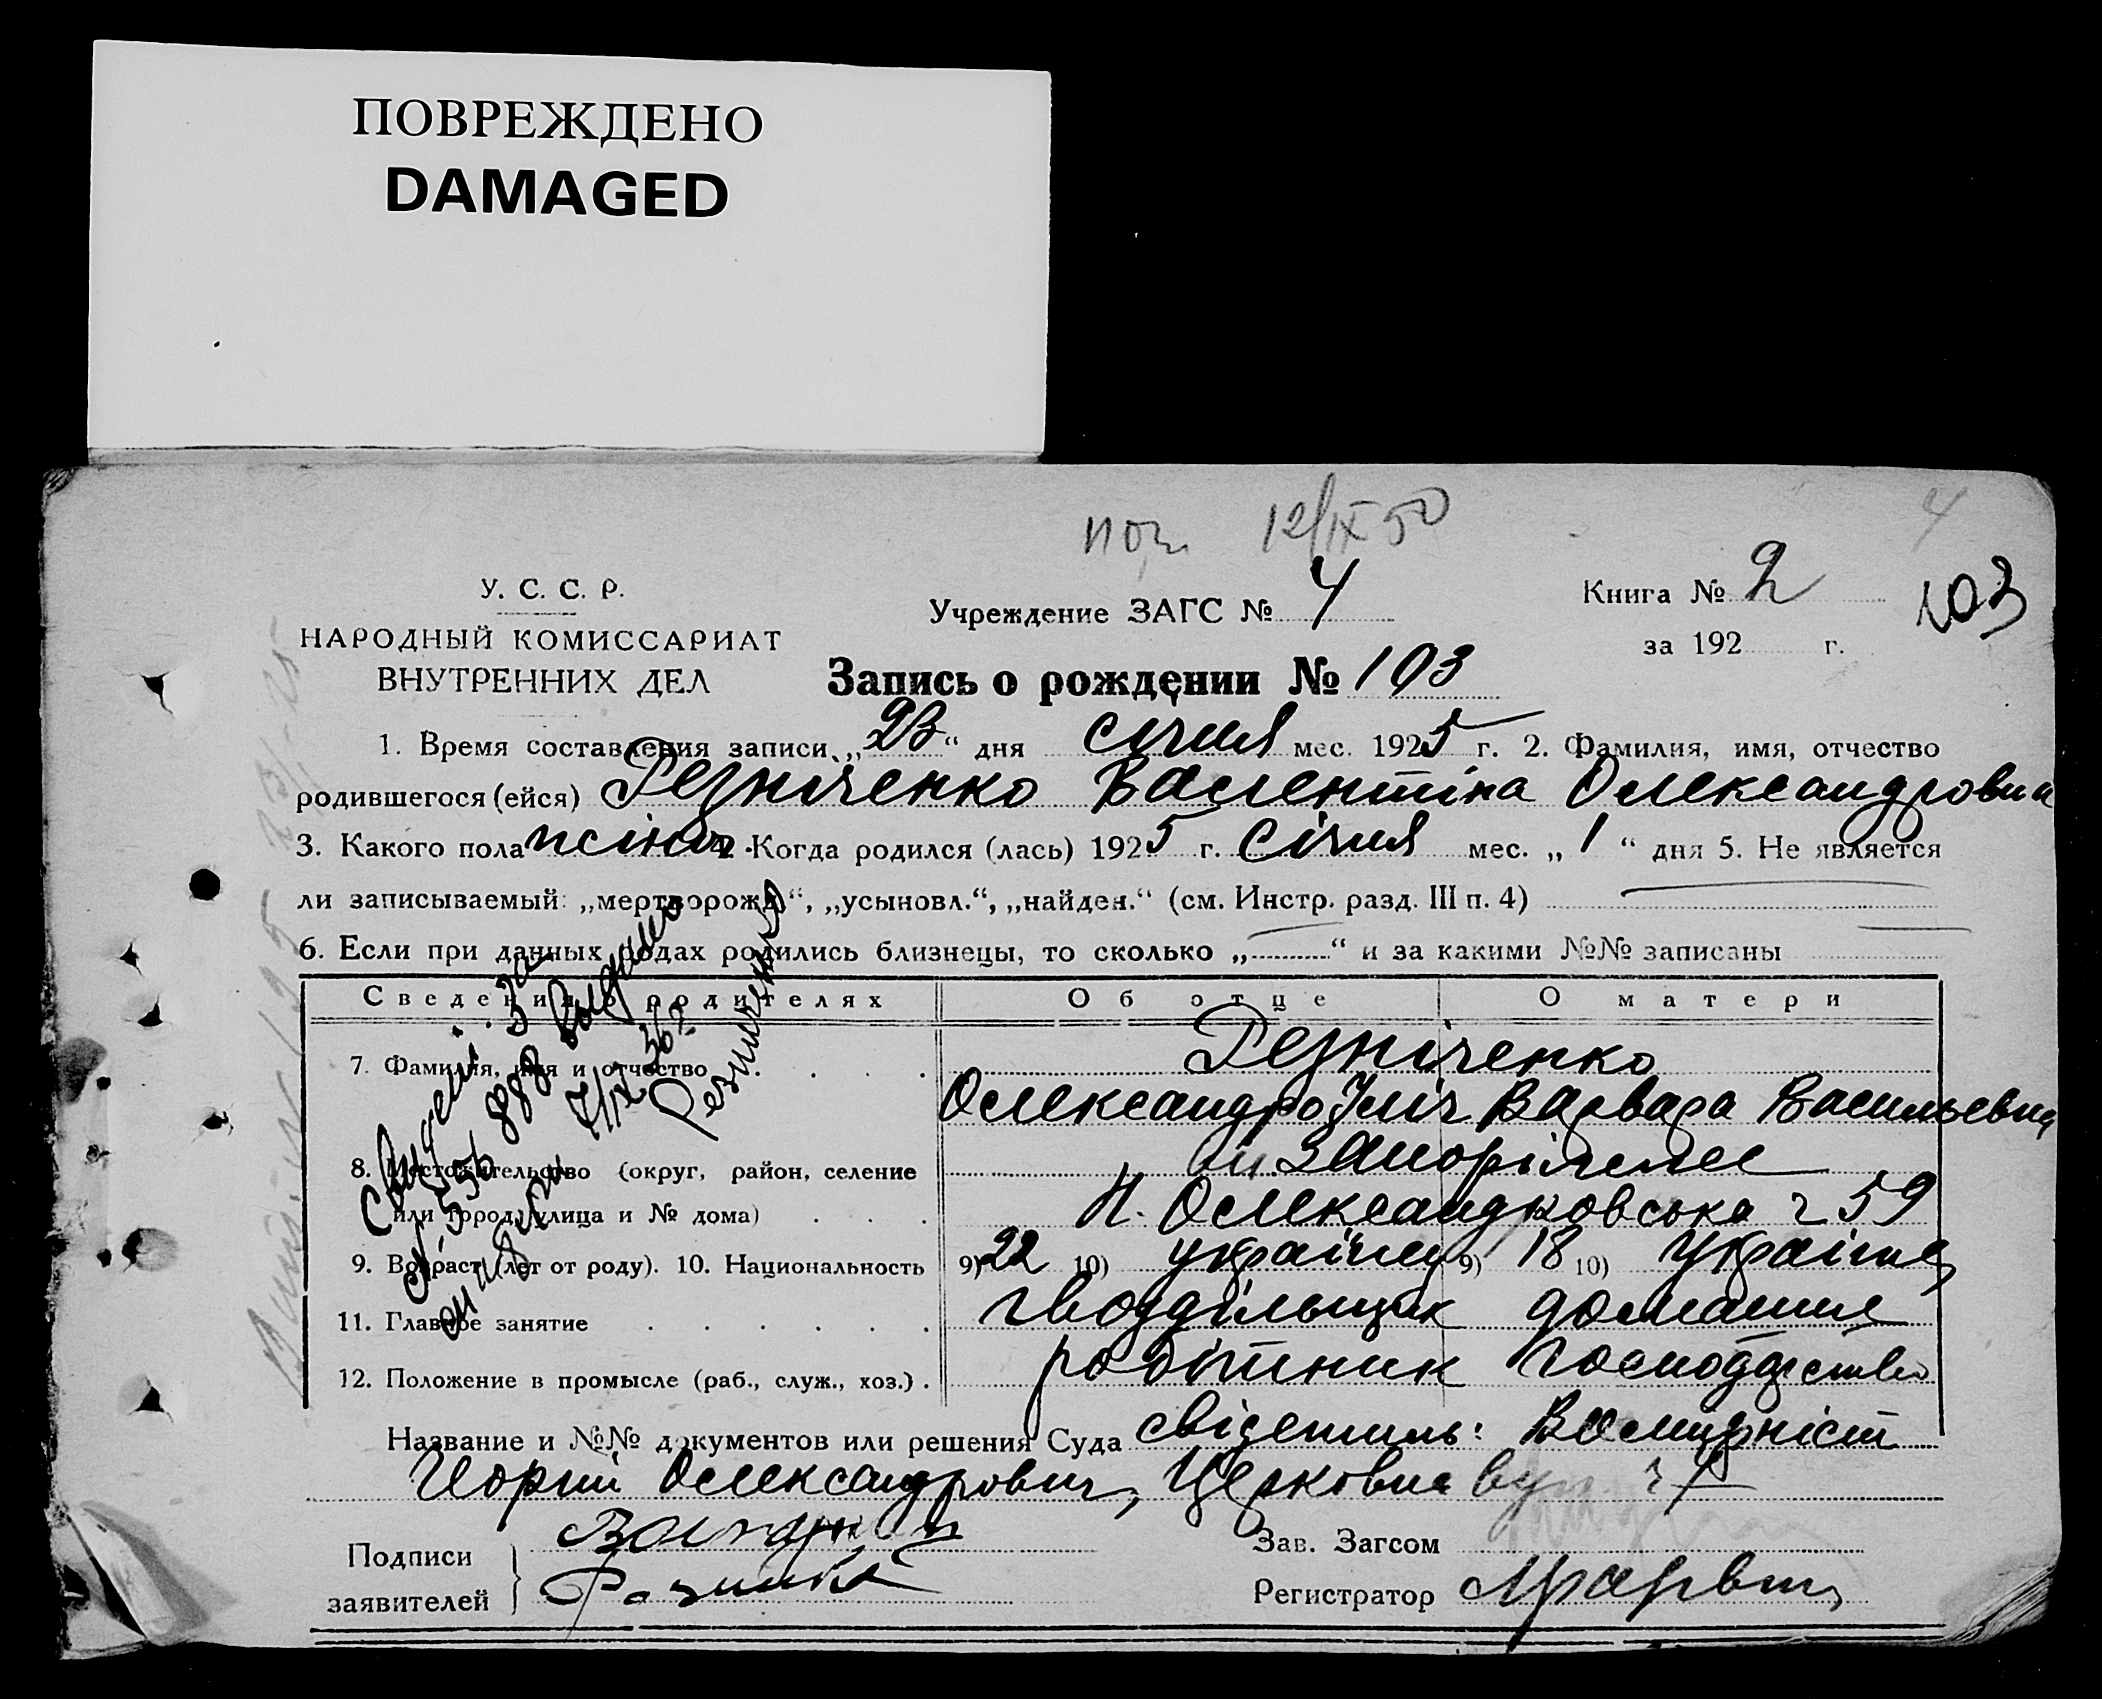 ПОВРЕЖДЕНО
DAMAGED
12/IX 50
4
У. С. С. Р.
НАРОДНЫЙ КОМИССАРИАТ
ВНУТРЕННИХ ДЕЛ
Учреждение ЗАГС № 4
Книга № 2
103
за 192 г.
Запись о рождении № 103
1. Время составления записи „23“ дня січня мес. 1925 г. 2. Фамилия, имя, отчество
родившегося (ейся) Резніченко Валентіна Олександровна
3. Какого пола жіноч. 4. Когда родился (лась) 1925 г. Січня мес. „1“ дня 5. Не является
ли записываемый: „мертворожд“, „усыновл.“, „найден.“ (см. Инстр. разд. III п. 4)
6. Если при данных родах родились близнецы, то сколько „ “ и за какими №№ записаны
Сведения о родителях Об отце О матери
7. Фамилия, имя и отчество Резніченко
Олександр Ілліч Варвара Васильевна
8. Местожительство (округ, район, селение Запоріжжє
или город, улица и № дома) Н. Олександровська 59
9. Возраст (лет от роду). 10. Национальность 9) 22 10) україн 9) 18 10) Україн
11. Главное занятие гвоздільщик домашнє
12. Положение в промысле (раб., служ., хоз.) робітник господарство
Название и №№ документов или решения Суда свідетиль:
Олександрович, Церковна вул
Подписи
заявителей
Зав. Загсом
Регистратор
888 Выдано
7/IX 36 г.
Резниченко